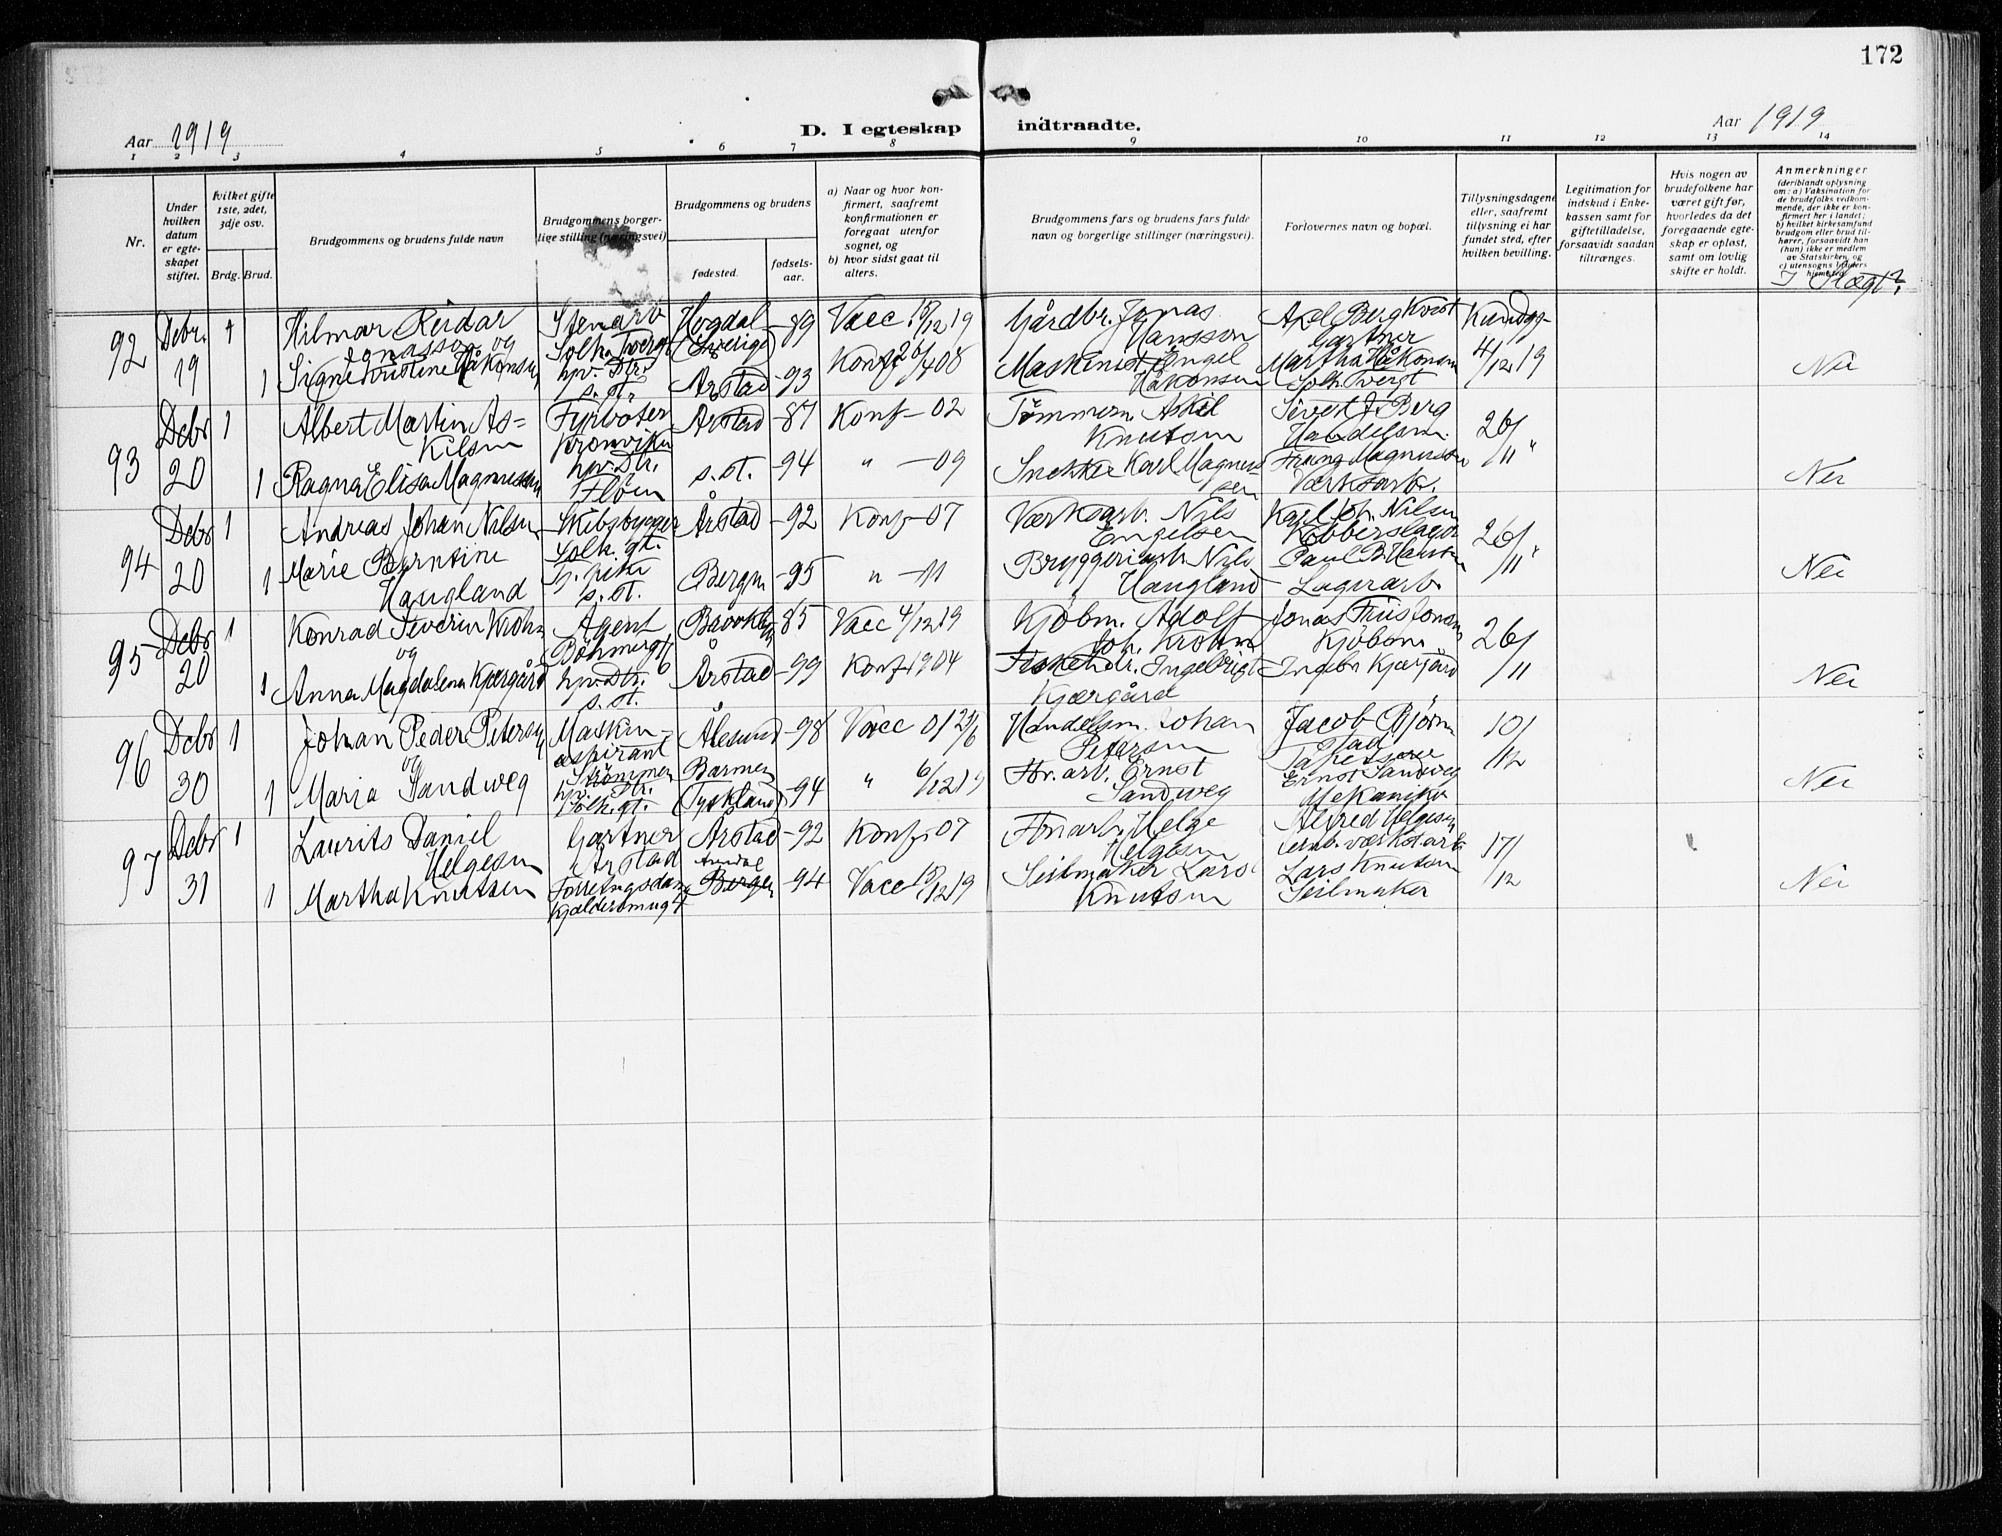 172
Aar 1919
D. I egteskap indtraadte.
Aar 1919
1 2 3 4 5 6 7 8 9 10 11 12 13 14
Nr.
Under hvilken datum er egte-skapet stiftet.
hvilket gifte 1ste, 2det, 3dje osv.
Brdg. Brud.
Brudgommens og brudens fulde navn
Brudgommens borger-lige stilling (næringsvei)
Brudgommens og brudens
fødested.
fødsels-aar.
a) Naar og hvor kon-firmert, saafremt konfirmationen er foregaat utenfor sognet, og
b) hvor sidst gaat til alters.
Brudgommens fars og brudens fars fulde navn og borgerlige stillinger (næringsvei).
Forlovernes navn og bopæl.
Tillysningsdagene eller, saafremt tillysning ei har fundet sted, efter hvilken bevilling.
Legitimation for indskud i Enke-kassen samt for giftetilladelse, forsaavidt saadan tiltrænges.
Hvis nogen av brudefolkene har været gift før, hvorledes da det foregaaende egte-skap er opløst, samt om lovlig skifte er holdt.
Anmerkninger
(deriblandt oplysning om: a) Vaksination for de brudefolks vedkom-mende, der ikke er kon-firmert her i landet; b) hvilket kirkesamfund brudgom eller brud til-hører, forsaavidt han (hun) ikke er medlem av Statskirken, og c) utensogns bruders hjemsted.
I Slægt?
92 Decbr. 19 1 Hilmar Reidar Jonasson og
Stenarb Solh. Hogdal (Sverige) -89 Vacc 15/12 19
Gårdbr. Jonas Hansson
Axel Bergkvist Gartner
Kundgj- 4/12 19
1 Signe Kristine Håkonsen
hpv. Dtr. s. st. Arstad -93 Konf 26/4 08
Maskinist Engel Håkonsen
Martha Håkonsen
Nei
93 Decbr 20 1 Albert Martin As=kilsen
Fyrbøter Kronviken Arstad -87 Konf -02
Tömmerm Askil Knutsen
Sivert J. Berg Handelsm.
26/11 "
1 Ragna Elisa Magnussen
hpv. Dtr. Fløen s. st. -94 " -09
Snekker Karl Magnussen
Franz Magnussen Værkstarb.
Nei
94 Decbr 20 1 Andreas Johan Nilsen
Skibsbygger Solh. gt. Årstad -92 Konf -07
Værksarb. Nils Engelsen
Karl Joh. Nilsen Kobberslager
26/11 "
1 Marie Berntine Haugland
s. st. Bergen -95 " -11
Bryggeriarb. Nils Haugland
Paul B. Lagerarb.
Nei
95 Decbr 20 1 Konrad Severin Krohn og
Agent Böhmergt 6 Brooklyn -85 Vacc 4/12 19
Kjöbm. Adolf Joh. Krohn
Jonas Friis Jonassen Kjöbm
26/11
1 Anna Magdalena Kjærgård
hpv. Dtr. s. st. Årstad -99 Konf 1904
Fiskehdl. Ingebrigt Kjærgård
Ingebr Kjærgård
Nei
96 Decbr 30 1 Johan Peder Petersen og
Maskin-aspirant Ålesund -98 Vacc 01 2/6
Handelsm. Johan Petersen
Jacob Bjørnstad Tapetserer
10/12
1 Maria Sandweg
Strömmen hpv. Dtr. Solh. gt. Barmen (Tyskland) -94 " 6/12 19
Ernst Sandweg
Ernst Sandweg Mekaniker
Nei
97 Decbr 31 1 Laurits Daniel Helgesen
Gartner Arstad Arstad -92 Konf -07
Helge Helgesen
Alfred Helgesen
17/12
1 Martha Knutsen
Forretningsdame Kjeldersmugt Arendal Bergen -94 Vacc 15/12 19
Seilmaker Lars Knutsen
Lars Knutsen Seilmaker
Nei